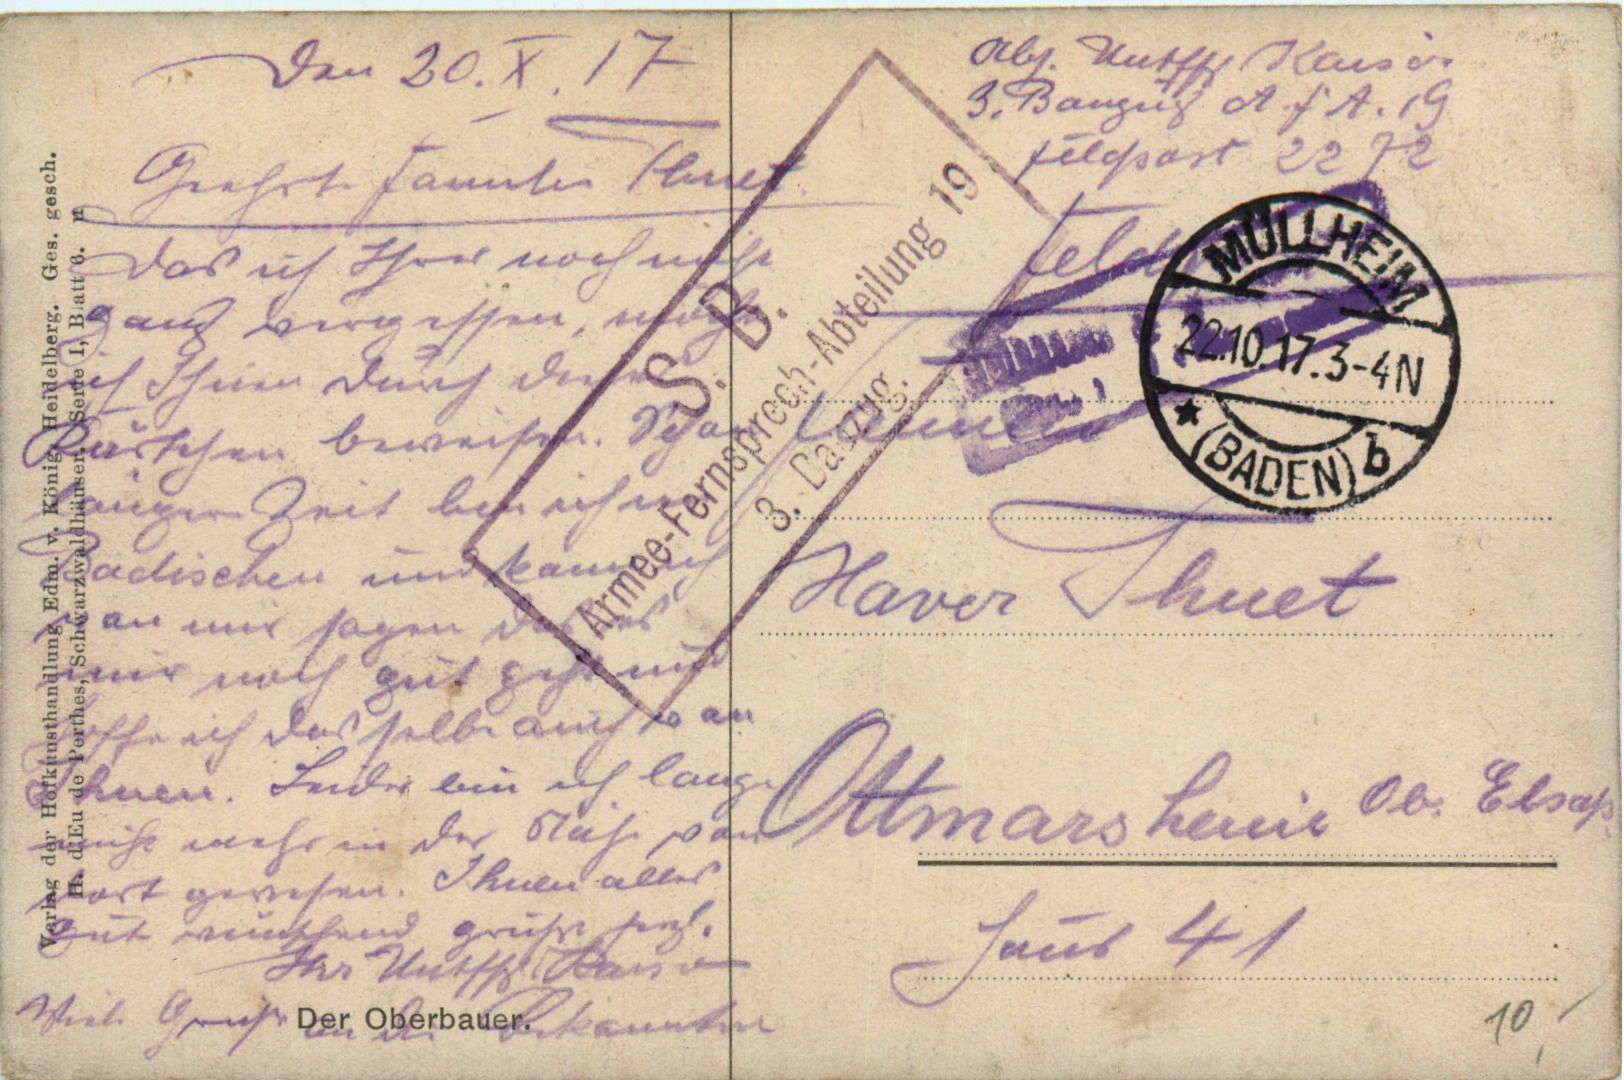 Den 20. X. 17
Geehrte Familie Thuet.
Das ich Ihrer noch nicht
ganz vergessen, möcht
ich Ihnen durch dieses
Kärtchen beweisen. Schon
länger Zeit bin ich im
Badischen und kann ich
von mir sagen das es
mir noch gut geht und
hoffe ich dasselbe auch von
Ihnen. Leider bin ich lange
nicht mehr in der Nähe von
dort gewesen. Ihnen alles
gut wünschend grüßt herzl.
Ihr Untffz Kaiser
Viele Grüße an die Bekannten
Der Oberbauer.
Verlag der Hofkunsthandlung Edm. v. König, Heidelberg. Ges. gesch.
H. dEu de Perthes, Schwarzwaldhäuser. Serie I, Blatt 6. n
Abs. Untffz Kaiser
3. Bauzug A f A. 19
Feldpost 2272
S. B.
Armee-Fernsprech-Abteilung 19
3. Bauzug.
MÜLLHEIM
22.10.17.3-4N
(BADEN) b
Familie
Xaver Thuet
Ottmarsheim Ob. Elsaß
Haus 41
10